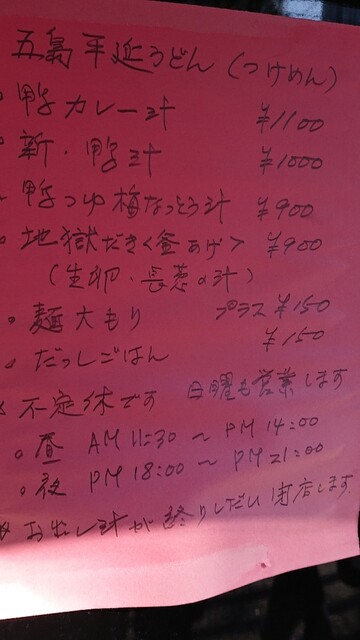 五島手延うどん (つけめん)
。鴨カレー汁 ¥1100
新・鴨汁 ¥1000
鴨つゆ梅なっとう汁 ¥900
。地獄だき<釜あげ> ¥900
(生卵・長葱の汁)
。麺大もり プラス¥150
。だっしごはん ¥150
不定休です 日曜も営業します
。昼 AM 11:30 ~ PM 14:00
。夜 PM 18:00 ~ PM 21:00
※お出し汁が終りしだい閉店します